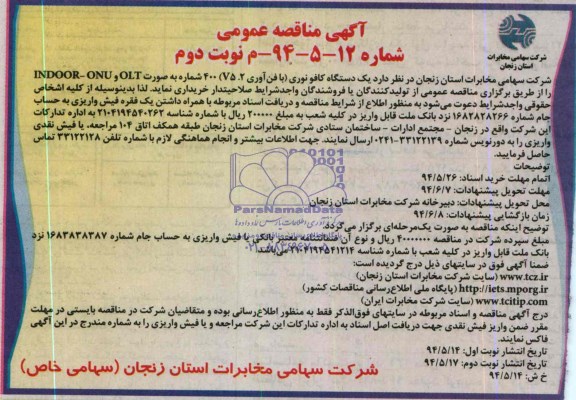 آگهی مناقصه عمومی
شماره ۱۲-۵-۹۴-م نوبت دوم
شرکت سهامی مخابرات
استان زنجان
شرکت سهامی مخابرات استان زنجان در نظر دارد یک دستگاه کافو نوری (با فن‌آوری V5.2) ۴۰۰ شماره به صورت OLT و INDOOR- ONU
را از طریق برگزاری مناقصه عمومی از تولیدکنندگان یا فروشندگان واجدشرایط صلاحیتدار خریداری نماید. لذا بدینوسیله از کلیه اشخاص
حقوقی واجدشرایط دعوت می‌شود به منظور اطلاع از شرایط مناقصه و دریافت اسناد مربوطه با همراه داشتن یک فقره فیش واریزی به حساب
جام شماره ۱۶۸۲۸۲۸۲۶۶ نزد بانک ملت قابل واریز در کلیه شعب به مبلغ ۲۰۰۰۰۰ ریال با شماره شناسه ۲۱۰۴۱۹۴۵۴۰۲۶۲ به اداره تدارکات
این شرکت واقع در زنجان - مجتمع ادارات - ساختمان ستادی شرکت مخابرات استان زنجان طبقه همکف اتاق ۱۰۴ مراجعه، یا فیش نقدی
واریزی را به دورنویس شماره ۳۳۱۲۲۱۳۹-۲۴۱ ارسال نمایند. جهت اطلاعات بیشتر و انجام هماهنگی لازم با شماره تلفن ۳۳۱۲۲۱۲۸ تماس
حاصل فرمایید.
توضیحات
اتمام مهلت خرید اسناد: ۹۴/۵/۲۶
مهلت تحویل پیشنهادات: ۹۴/۶/۷
محل تحویل پیشنهادات: دبیرخانه شرکت مخابرات استان زنجان
زمان بازگشایی پیشنهادات: ۹۴/۶/۸
توضیح اینکه مناقصه به صورت یک‌مرحله‌ای برگزار می‌گردد.
مبلغ سپرده شرکت در مناقصه ۴۰۰۰۰۰۰۰ ریال و نوع آن ضمانتنامه معتبر بانکی یا فیش واریزی به حساب جام شماره ۱۶۸۳۸۳۸۳۸۷ نزد
بانک ملت قابل واریز در کلیه شعب با شماره شناسه می‌باشد.
ضمنا آگهی فوق در سایتهای ذیل درج گردیده است:
www.tcz.ir (سایت شرکت مخابرات استان زنجان)
http://iets.mporg.ir (پایگاه ملی اطلاع‌رسانی مناقصات کشور)
www.tcitip.com (سایت شرکت مخابرات ایران)
درج آگهی مناقصه و اسناد مربوطه در سایتهای فوق‌الذکر فقط به منظور اطلاع‌رسانی بوده و متقاضیان شرکت در مناقصه بایستی در مهلت
مقرر ضمن واریز فیش نقدی جهت دریافت اصل اسناد به اداره تدارکات این شرکت مراجعه و یا فیش واریزی را به شماره مندرج در این آگهی
فاکس نمایند
تاریخ انتشار نوبت اول: ۹۴/۵/۱۴
تاریخ انتشار نوبت دوم: ۹۴/۵/۱۷
خ ش: ۹۴/۵/۱۴
شرکت سهامی مخابرات استان زنجان (سهامی خاص)
ParsNamadData